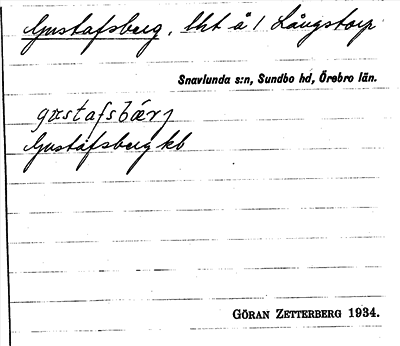 Gustafsberg, lht å 1 Långstorp
Snavlunda s:n, Sundbo hd, Örebro län.
gustafsbärj
Gustafsberg kb
GÖRAN ZETTERBERG 1934.